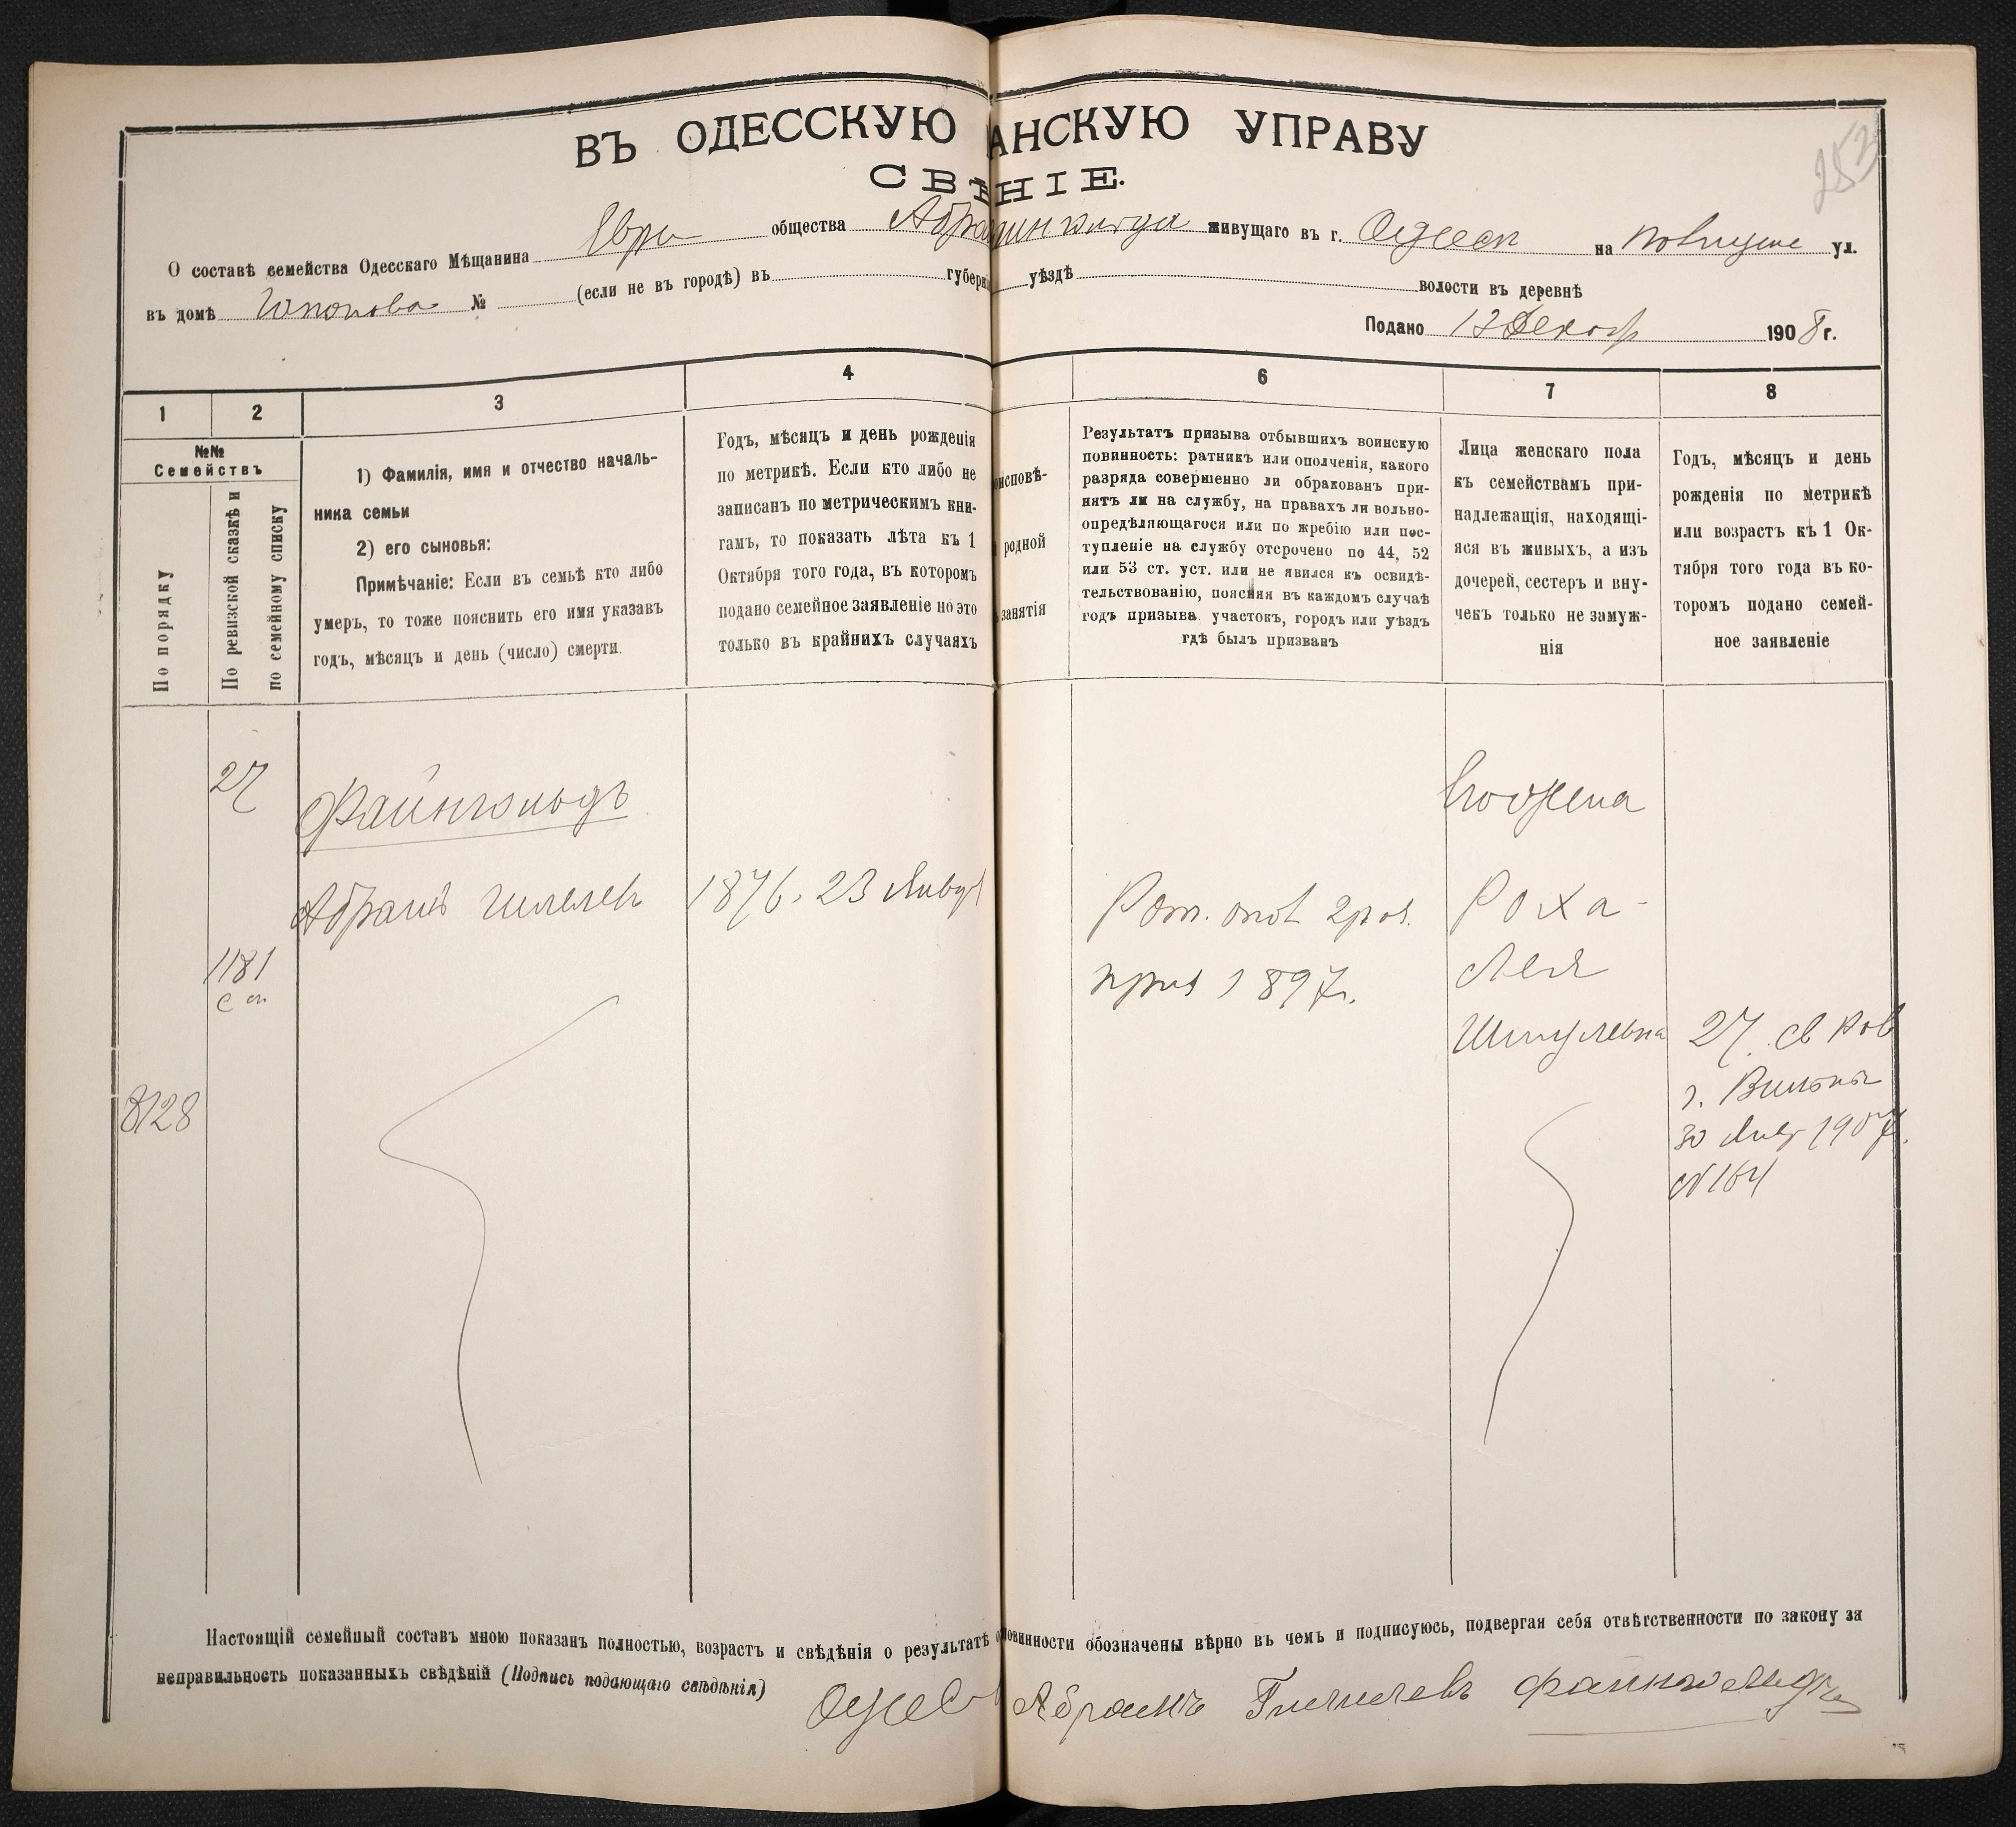 ВЪ ОДЕССКУЮ АНСКУЮ УПРАВУ
СВѢНІЕ.
О составѣ семейства Одесскаго Мѣщанина Евре общества живущаго въ г. Одессѣ на ул.
въ домѣ № (если не въ городѣ) въ губерні уѣздѣ волости въ деревнѣ
Подано 12 Декабр 1908 г.
1 2 3 4 6 7 8
№№
Семействъ
По порядку
По ревизской сказкѣ и
по семейному списку
1) Фамилія, имя и отчество началь-
ника семьи
2) его сыновья:
Примѣчаніе: Если въ семьѣ кто либо
умеръ, то тоже пояснить его имя указавъ
годъ, мѣсяцъ и день (число) смерти.
Годъ, мѣсяцъ и день рожденія
по метрикѣ. Если кто либо не
записанъ по метрическимъ кни-
гамъ, то показать лѣта къ 1
Октября того года, въ которомъ
подано семейное заявленіе но это
только въ крайнихъ случаяхъ
исповѣ-
родной
занятія
Результатъ призыва отбывшихъ воинскую
повинность: ратникъ или ополченія, какого
разряда совершенно ли обракованъ при-
нятъ ли на службу, на правахъ ли вольно-
опредѣляющагося или по жребію или пос-
тупленіе на службу отсрочено по 44, 52
или 53 ст. уст. или не явился къ освидѣ-
тельствованію, поясняя въ каждомъ случаѣ
годъ призыва участокъ, городъ или уѣздъ
гдѣ былъ призванъ
Лица женскаго пола
къ семействамъ при-
надлежащія, находящі-
яся въ живыхъ, а изъ
дочерей, сестеръ и вну-
чекъ только не замуж-
нія
Годъ, мѣсяцъ и день
рожденія по метрикѣ
или возрастъ къ 1 Ок-
тября того года въ ко-
торомъ подано семей-
ное заявленіе
27
Файнгольдъ
Его жена
Абрамъ Гилелевъ 1876. 23 Январ
Рат. опол 2 раз. Роха-
1181
с сп
приз 1897 г. Лея
Шмулевна 27. св Рав
г. Вильны
8128
30 Янвр 1907 г.
№ 164
Настоящій семейный составъ мною показанъ полностью, возрастъ и свѣдѣнія о результатѣ о повинности обозначены вѣрно въ чемъ и подписуюсь, подвергая себя отвѣтственности по закону за
неправильность показанныхъ свѣдѣній (Подпись подающаго свѣдѣнія)
Одес Абрамъ Гилелевъ Файнгольдъ